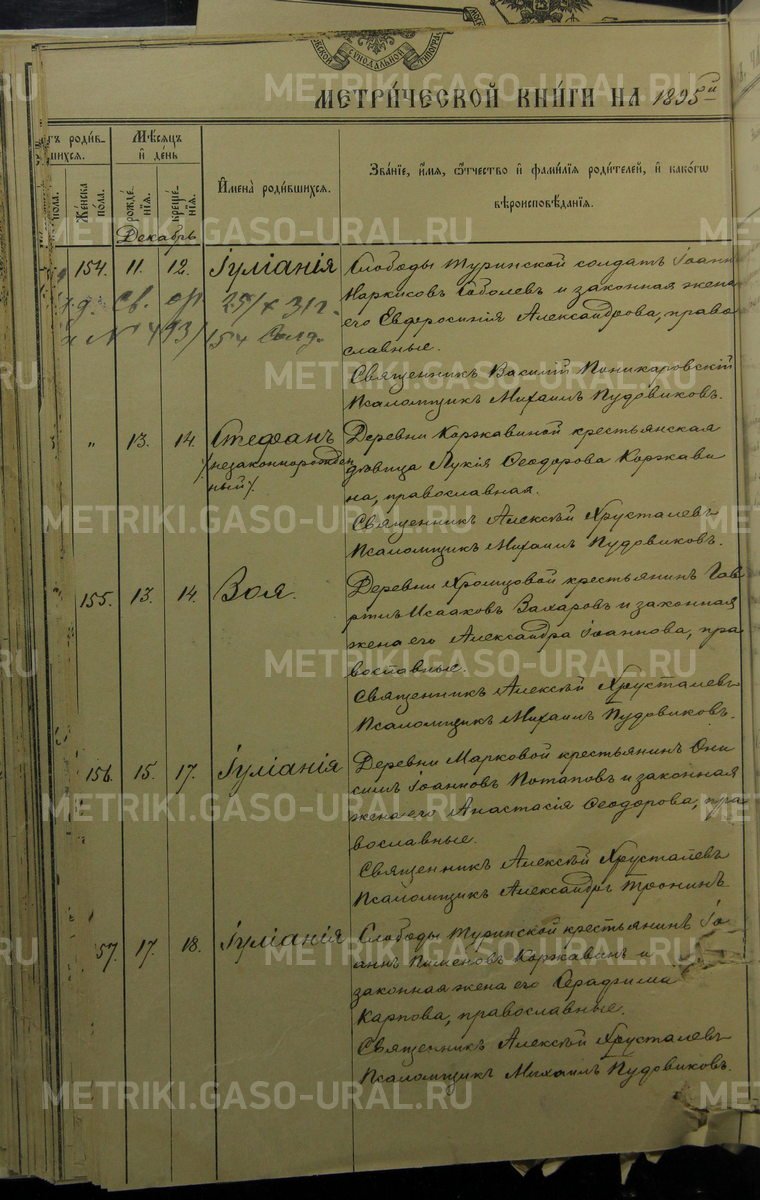 СУНОДАЛЬНОЙ
МЕТРИ́ЧЕСКОЙ КНИ́ГИ НА 1895й
роди́в-
шихся.
Мѣ́сяцъ
и҆ де́нь
Же́нска
по́ла.
рожде́-
нїѧ.
креще́-
нїѧ.
И҆мена̀ роди́вшихся.
Зва́нїе, и҆́мѧ, ѻ҆́тчество и҆ фами́лїѧ роди́телей, и҆ како́гѡ
вѣроисповѣ́данїѧ.
Декабрь
154. 11. 12. Іуліанія Слободы Туринской солдатъ Іоаннъ
Наркисовъ Соболевъ и законная жена
его Евфросинія Александрова, право
славные.
Священникъ Василій Поникаровскій
Псаломщикъ Михаилъ Пудовиковъ.
„ 13. 14. Стефанъ Деревни Коржавиной крестьянская
/незаконнорожден дѣвица Лукія Ѳеодорова Коржави
ный/. на, православная.
Священникъ Алексѣй Хрусталевъ
Псаломщикъ Михаилъ Пудовиковъ.
155. 13. 14. Зоя. Деревни Хромцовой крестьянинъ Гав
ріилъ Исааковъ Захаровъ и законная
жена его Александра Іоаннова, пра
вославные.
Священникъ Алексѣй Хрусталевъ
Псаломщикъ Михаилъ Пудовиковъ.
156. 15. 17. Іуліанія Деревни Марковой крестьянинъ Они
симъ Іоанновъ Потаповъ и законная
жена его Анастасія Ѳеодорова, пра
вославные.
Священникъ Алексѣй Хрусталевъ
Псаломщикъ Александръ Тронинъ
57. 17. 18. Іуліанія Слободы Туринской крестьянинъ Іо
аннъ Пименовъ Коржавинъ и
законная жена его Серафима
Карпова, православные.
Священникъ Алексѣй Хрусталевъ
Псаломщикъ Михаилъ Пудовиковъ.
METRIKI.GASO-URAL.RU